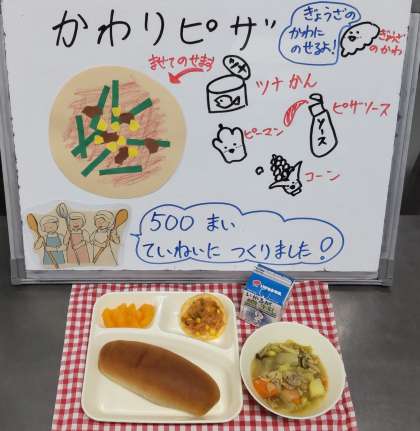 かわりピザ
ぎょうざの
かわに
のせるよ!
ぎょうざ
のかわ
まぜてのせます
ツナ
ツナかん
ピザソース
ソース
ピーマン
コーン
500 まい
ていねいに つくりました!